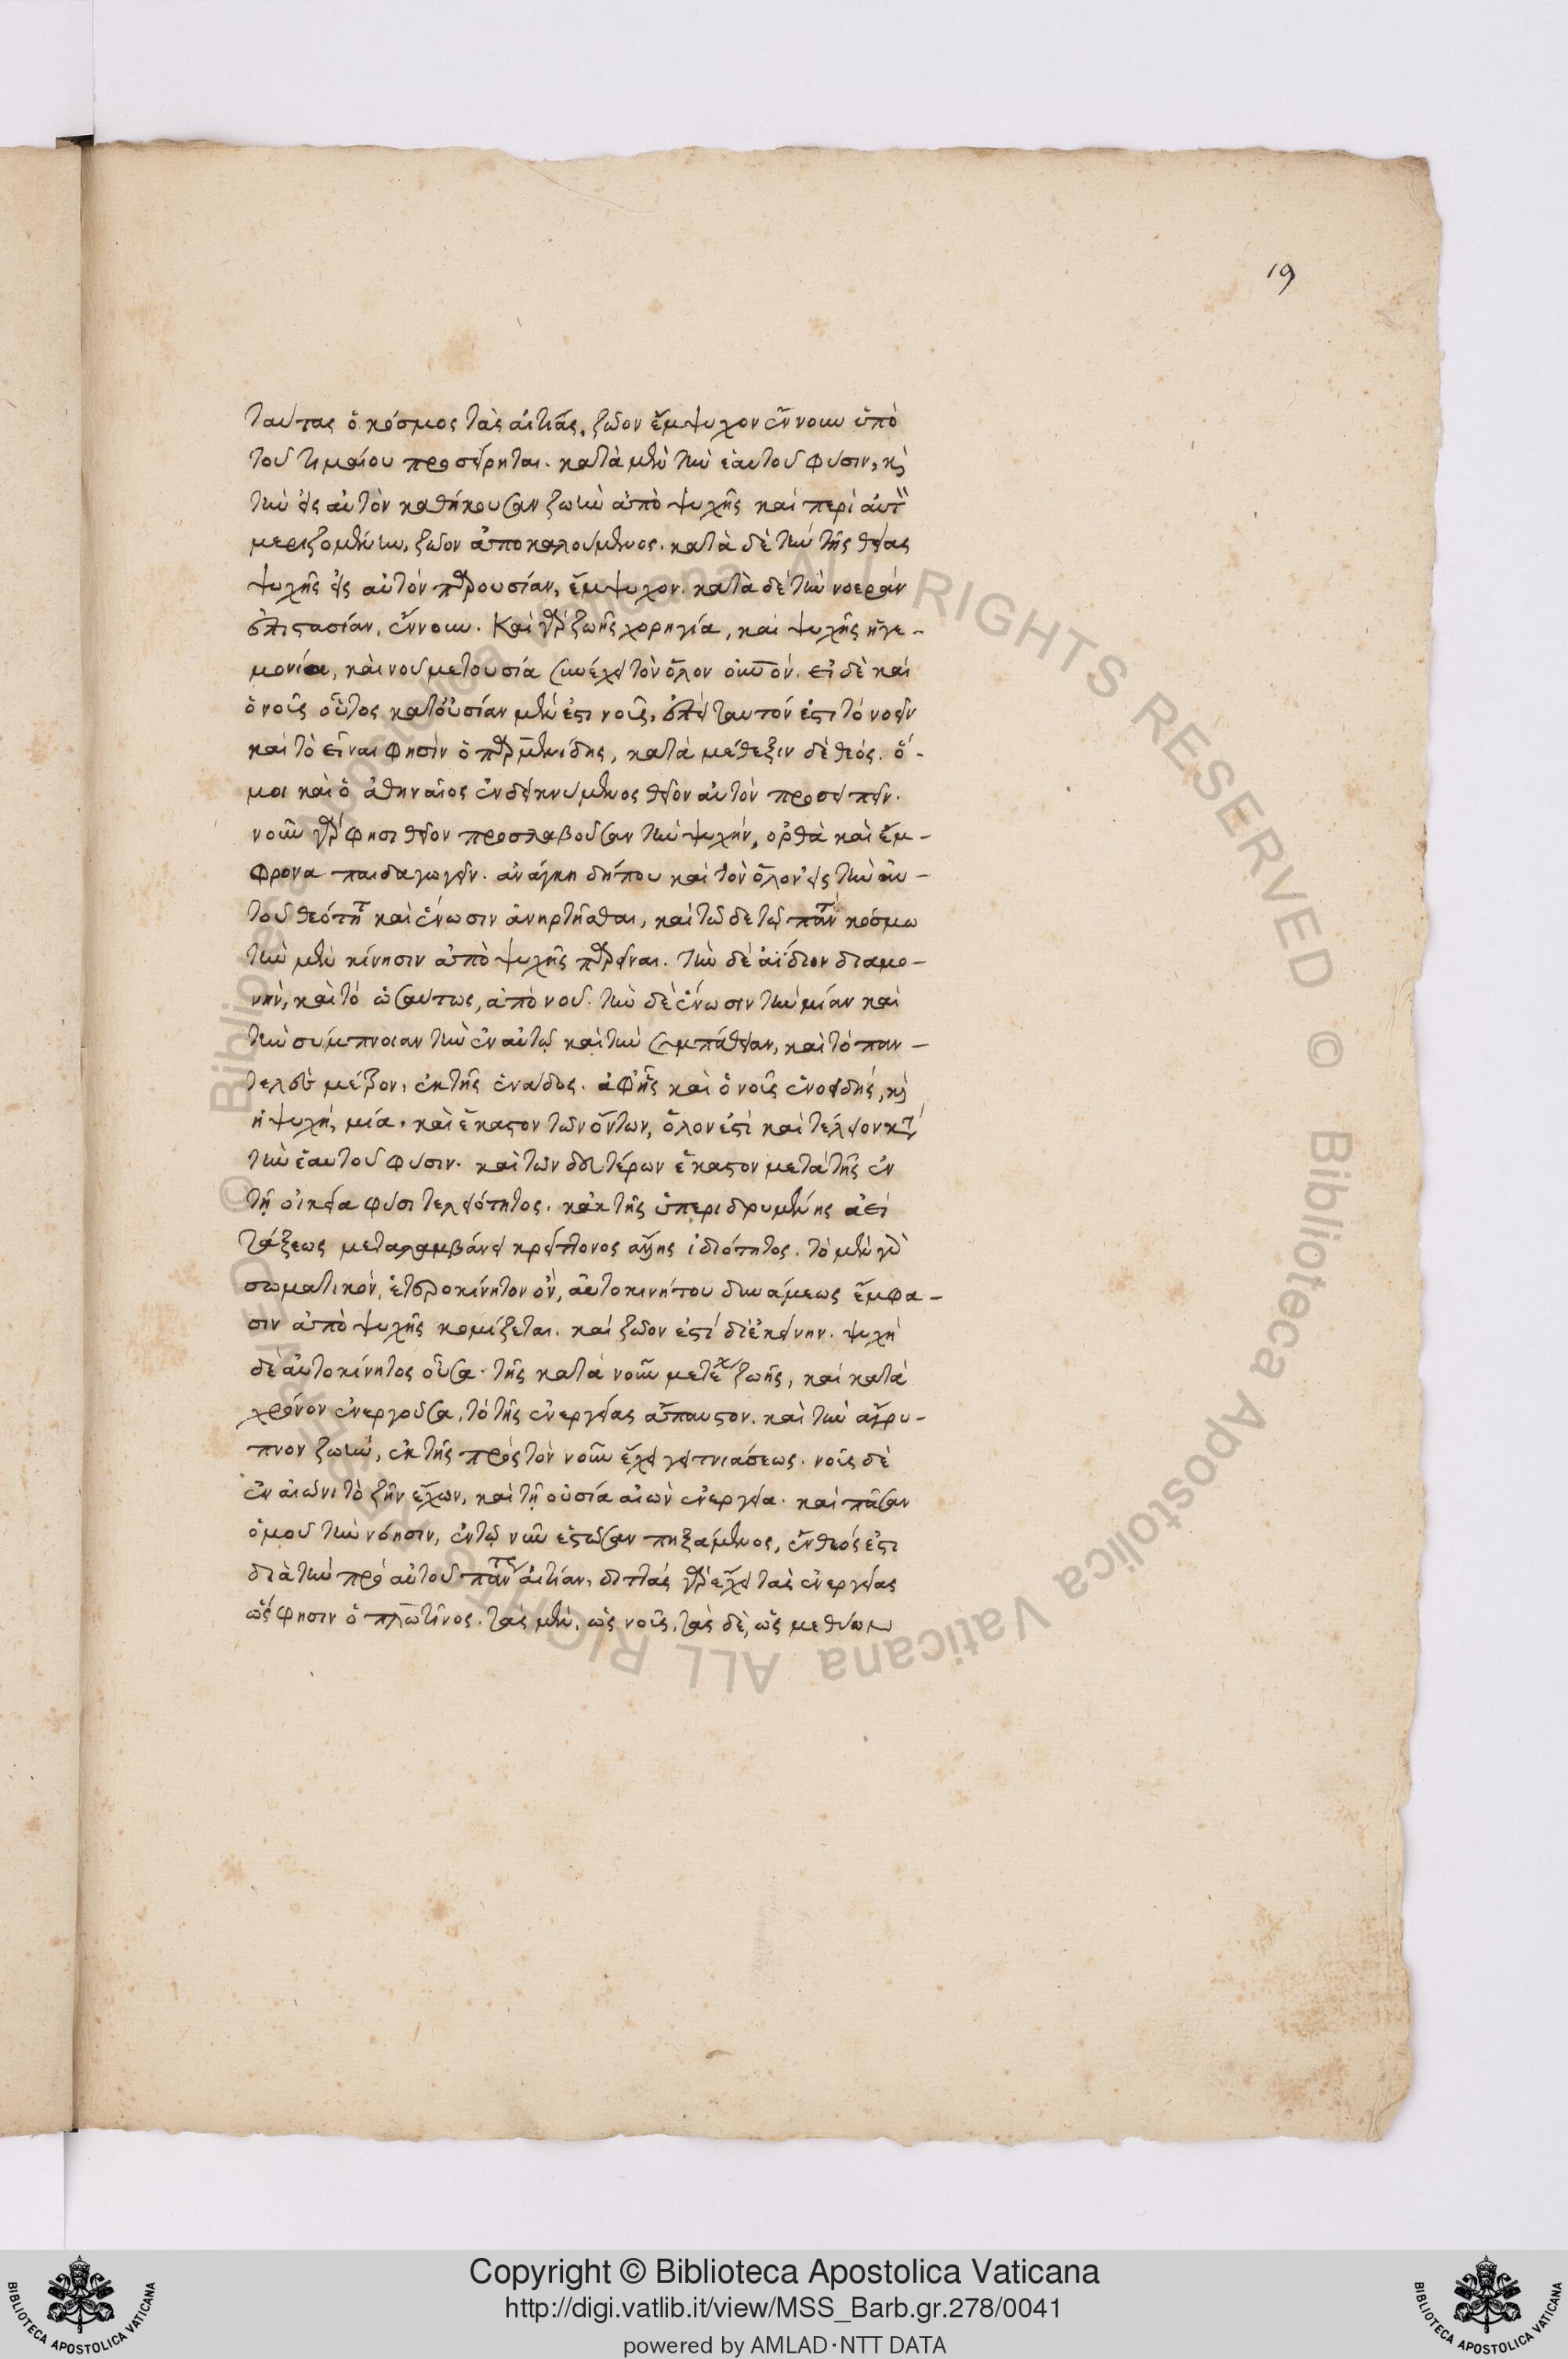 19
ταύτας ὁ κόσμος τὰς αἰτίας, ζῶον ἔμψυχον ἔννουν ὑπὸ
τοῦ τιμαίου προσείρηται. κατὰ μὲν τὴν ἑαυτοῦ φύσιν, καὶ
τὴν εἰς αὐτὸν καθήκουσαν ζωὴν ἀπὸ ψυχῆς καὶ περὶ αὐτὸν
μεριζομένην, ζῶον ἀποκαλούμενος. κατὰ δὲ τὴν τῆς θείας
ψυχῆς εἰς αὐτὸν παρουσίαν, ἔμψυχον. κατὰ δὲ τὴν νοερὰν
ἐπιστασίαν, ἔννουν. Καὶ γὰρ ζωῆς χορηγία, καὶ ψυχῆς ἡγε-
μονία, καὶ νοῦ μετουσία συνέχει τὸν ὅλον οὐρανόν. εἰ δὲ καὶ
ὁ νοῦς οὗτος κατ' οὐσίαν μέν ἐστι νοῦς, ἐπεὶ ταυτόν ἐστι τὸ νοεῖν
καὶ τὸ εἶναι φησὶν ὁ παρμενίδης, κατὰ μέθεξιν δὲ θεός. ὅ
μοι καὶ ὁ ἀθηναῖος ἐνδεικνύμενος θεῖον αὐτὸν προσεῖπεν.
νοῦν γὰρ φησι θεῖον προσλαβοῦσαν τὴν ψυχήν, ὀρθὰ καὶ ἔμ-
φρονα παιδαγωγεῖν. ἀνάγκη δήπου καὶ τὸν ὅλον εἰς τὴν αὐ-
τοῦ θεότητα καὶ ἕνωσιν ἀνηρτῆσθαι, καὶ τῷδε τῷ παντὶ κόσμῳ
τὴν μὲν κίνησιν ἀπὸ ψυχῆς παρεῖναι. τὴν δὲ ἀΐδιον διαμο-
νὴν, καὶ τὸ ὡσαύτως, ἀπὸ νοῦ. τὴν δὲ ἕνωσιν τὴν μίαν καὶ
τὴν σύμπνοιαν τὴν ἐν αὐτῷ καὶ τὴν συμπάθειαν, καὶ τὸ παν-
τελὲς μέτρον, ἐκ τῆς ἑνάδος. ἀφ' ἧς καὶ ὁ νοῦς ἑνοειδής, καὶ
ἡ ψυχή, μία. καὶ ἕκαστον τῶν ὄντων, ὅλον ἐστὶ καὶ τέλειον κατὰ
τὴν ἑαυτοῦ φύσιν. καὶ τῶν δευτέρων ἕκαστον μετὰ τῆς ἐν
τῇ οἰκεία φύσει τελειότητος. κἀκ τῆς ὑπεριδρυμένης ἀεὶ
τάξεως μεταλαμβάνει κρείττονος ἄλλης ἰδιότητος. τὸ μὲν γὰρ
σωματικὸν, ἑτεροκίνητον ὂν, αὐτοκινήτου δυνάμεως ἔμφα-
σιν ἀπὸ ψυχῆς κομίζεται. καὶ ζῶον ἐστὶ δι' ἐκείνην. ψυχὴ
δὲ αὐτοκίνητος οὖσα. τῆς κατὰ νοῦν μετέχει ζωῆς, καὶ κατὰ
χρόνον ἐνεργοῦσα, τὸ τῆς ἐνεργείας ἄπαυστον. καὶ τὴν ἄγρυ-
πνον ζωὴν, ἐκ τῆς πρὸς τὸν νοῦν ἔχει γειτνιάσεως. νοῦς δὲ
ἐν αἰῶνι τὸ ζῆν ἔχων, καὶ τῇ οὐσία αἰὼν ἐνεργεία. καὶ πᾶσαν
ὁμοῦ τὴν νόησιν, ἐν τῷ νῦν ἑστῶσαν πηξάμενος, ἔνθεός ἐστι
διὰ τὴν πρὸ αὐτοῦ πάντως αἰτίαν. διττὰς γὰρ ἔχει τὰς ἐνεργείας
ὥς φησιν ὁ πλωτῖνος. τὰς μὲν, ὡς νοῦς, τὰς δὲ, ὡς μεθύων
Copyright © Biblioteca Apostolica Vaticana
http://digi.vatlib.it/view/MSS_Barb.gr.278/0041
powered by AMLAD·NTT DATA